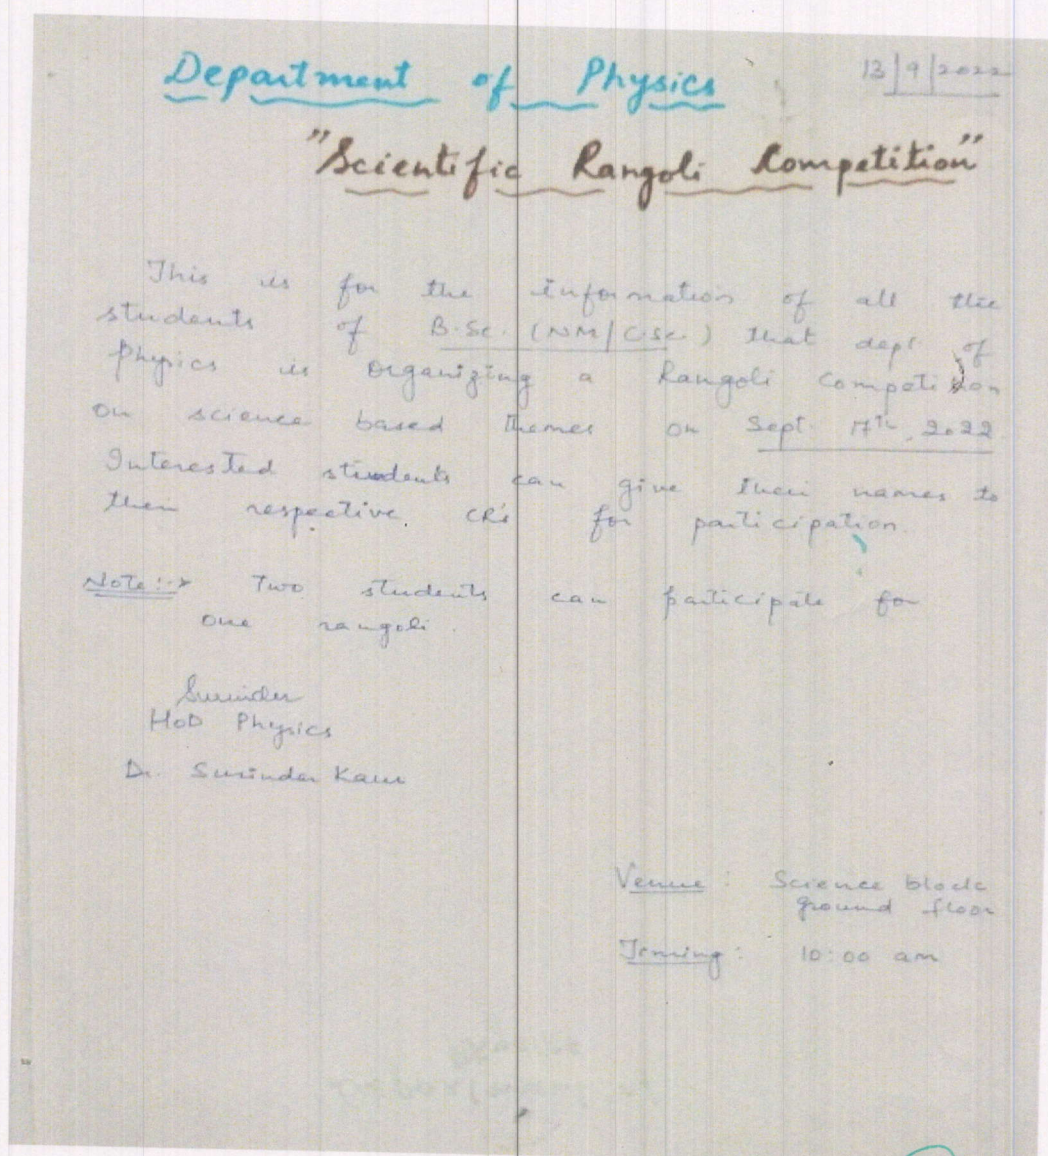 Department of Physics
13/9/2022
"Scientific Rangoli Competition"
This is for the information of all the
students of B.Sc. (NM/C.Sc.) that dept. of
Physics is organizing a Rangoli Competition
on science based themes on Sept. 17th, 2022
Interested students can give their names to
their respective CR's for participation.
Note:-> Two students can participate for
one rangoli.
Surinder
HoD Physics
Dr. Surinder Kaur
Venue : Science block
ground floor
Timing : 10:00 am